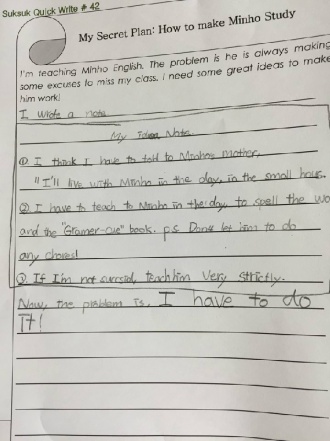 Suksuk Quick Write # 42
My Secret Plan: How to make Minho Study
I'm teaching Minho English. The problem is he is always making
some excuses to miss my class. I need some great ideas to make
him work!
I wrote a note
My Idea Note.
① I think I have to told to Minho's mother,
"I'll live with Minho in the day, in the small hour.
② I have to teach to Minho in the day, to spell the wo
and the "Gramer-cue" book. p.s Don't let him to do
any chores!
③ If I'm not sucressd, teach him very strictly.
Now, the problem is, I have to do
It!